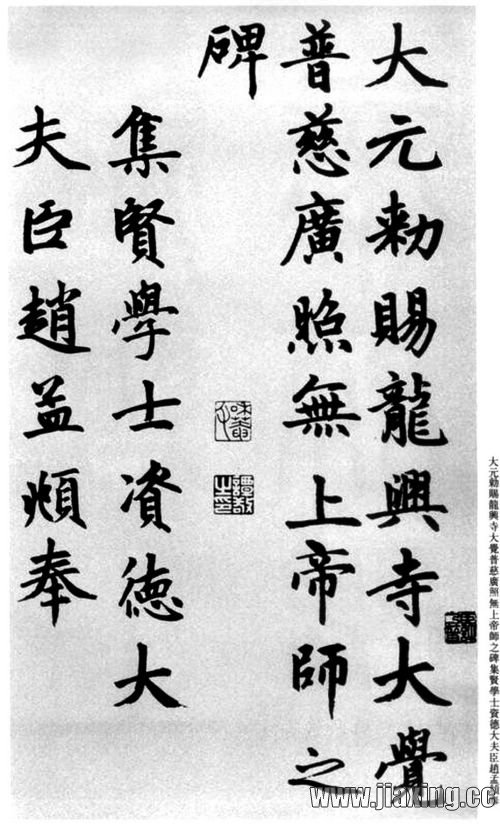 大元勑賜龍興寺大覺
普慈廣照無上帝師之
碑
集賢學士資德大
夫臣趙孟頫奉
大元勅賜龍興寺大覺普慈廣照無上帝師之碑集賢學士資德大夫臣趙孟
www.jiaxing.cc